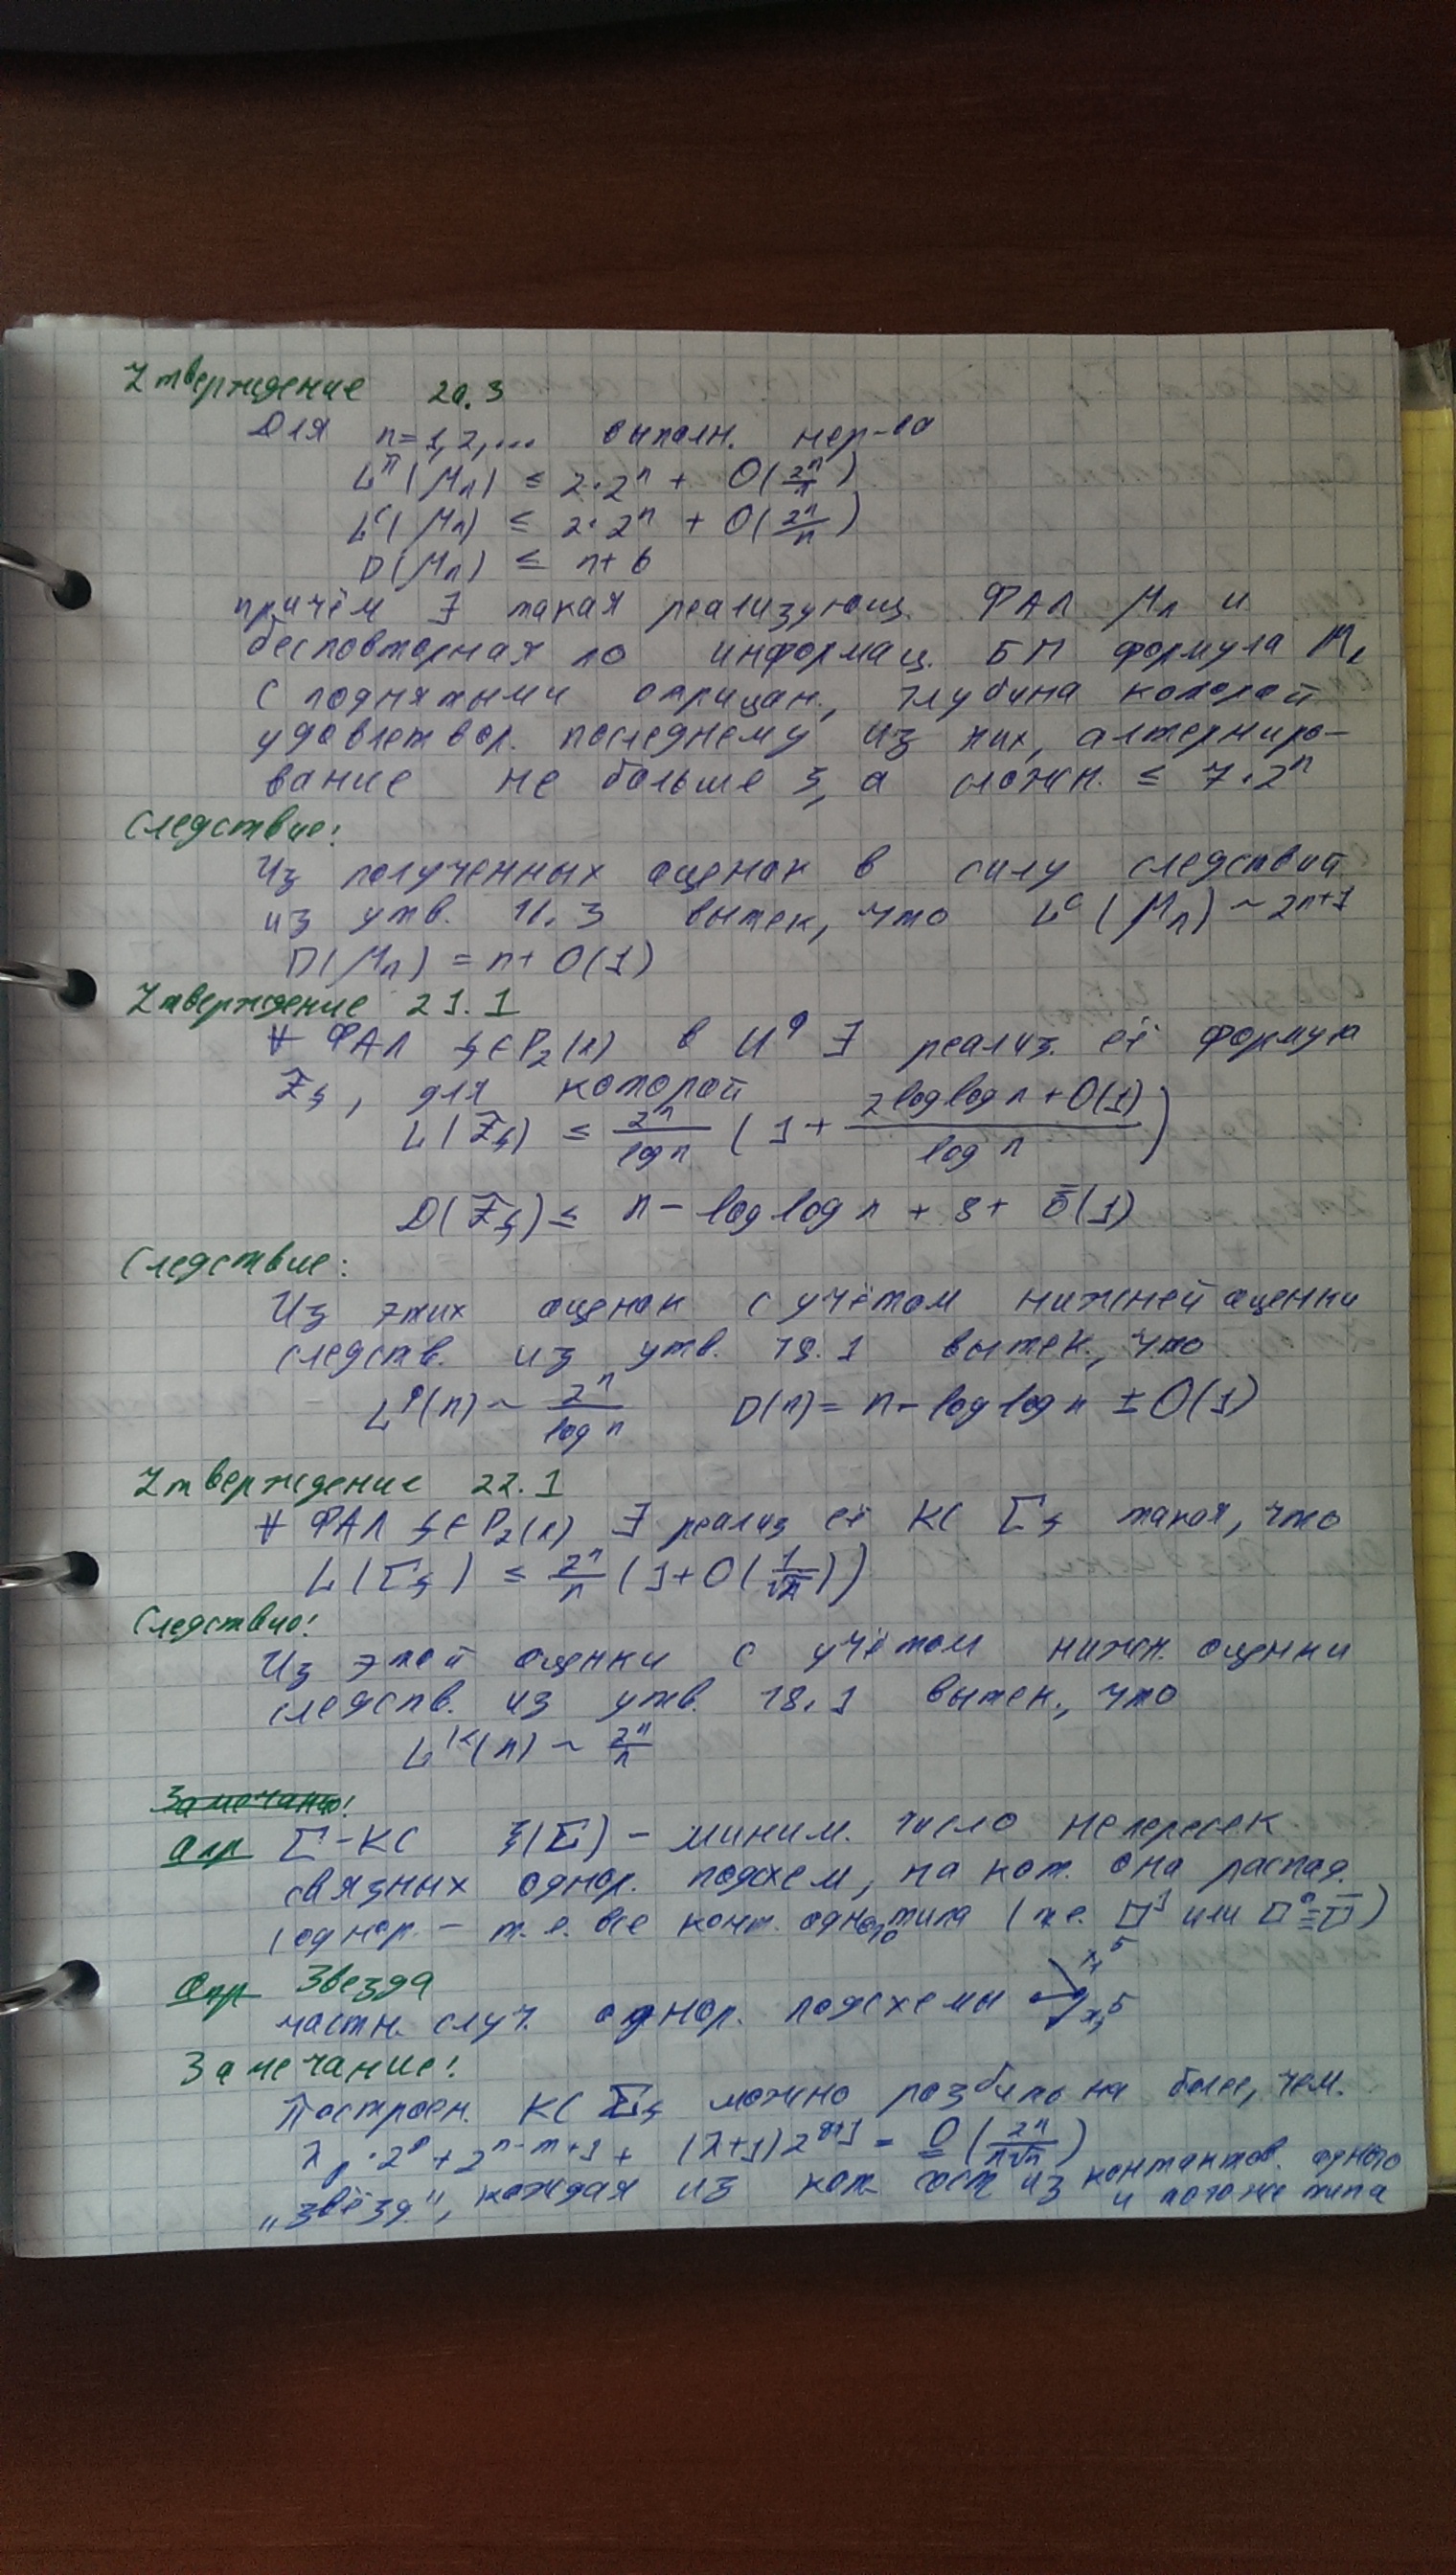 Утверждение 20.3
Для n=1,2,... выполн. нер-ва
L^π(μn) ≤ 2·2^n + O(2^n/n)
L^C(μn) ≤ 2·2^n + O(2^n/n)
D(μn) ≤ n+6
причём ∃ такая реализующ. ФАЛ μn и
бесповторная по информац. БП формула
с поднятыми отрицан., глубина которой
удовлетвор. последнему из них, альтерниро-
вание не больше 3, а сложн. ≤ 7·2^n
Следствие:
Из полученных оценок в силу следствий
из утв. 11.3 вытек, что L^C(μn) ~ 2^n+1
D(μn) = n+O(1)
Утверждение 21.1
∀ ФАЛ f∈P2(n) в U^φ ∃ реализ. её формула
Ff, для которой
L(Ff) ≤ 2^n/log n (1 + (2loglog n + O(1))/log n)
D(Ff) ≤ n − loglog n + 3 + ō(1)
Следствие:
Из этих оценок с учётом нижней оценки
следств. из утв. 18.1 вытек., что
L^φ(n) ~ 2^n/log n D(n) = n − loglog n ± O(1)
Утверждение 22.1
∀ ФАЛ f∈P2(n) ∃ реализ её КС Σf такая, что
L(Σf) ≤ 2^n/n (1+O(1/√n))
Следствие!
Из этой оценки с учётом нижн. оценки
следств. из утв. 18.1 вытек., что
L^K(n) ~ 2^n/n
Замечание!
Опр Σ-КС ξ(Σ) – миним. число непересек
связных однор. подсхем, на кот. она распад.
(однор. – т.е. все конт. одного типа (т.е. □^1 или □^0=□̄)
Опр Звезда
частн. случ. однор. подсхемы
Замечание!
Построен. КС Σf можно разбить на более, чем.
λp·2^p + 2^n-m+1 + (λ+1)2^q+1 = O(2^n/n√n)
„звёзд", каждая из кот. сост из контактов. одного
и того же типа